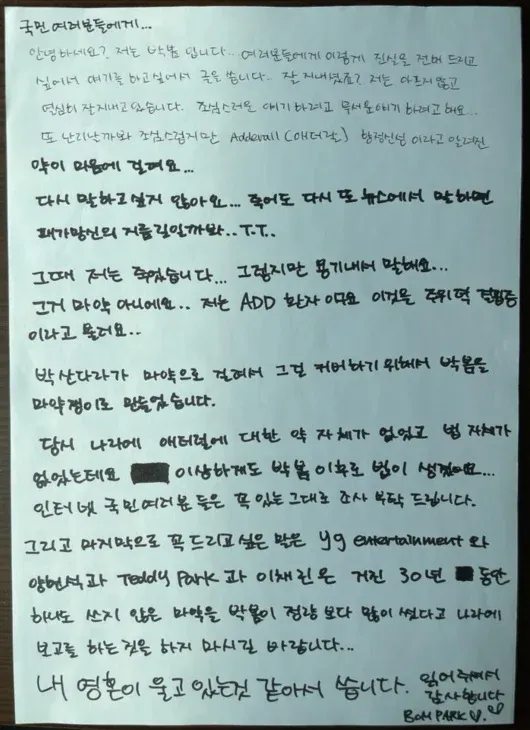 국민 여러분들에게...
안녕하세요? 저는 박봄 입니다.. 여러분들에게 이렇게 진실을 전해 드리고
싶어서 얘기를 하고싶어서 글을 씁니다. 잘 지내셨죠? 저는 아프지 않고
열심히 잘지내고 있습니다. 조심스러운 얘기 하려고 무서운얘기 하려고 해요...
또 난리날까봐 조심스럽지만 Adderall (애더럴) 향정신성 이라고 알려진
약이 마음에 걸려요...
다시 말하고싶지 않아요... 죽어도 다시 또 뉴스에서 말하면
패가망신의 지름길일까봐..T.T..
그때 저는 죽었습니다... 그렇지만 용기내서 말해요...
그거 마약 아니에요.. 저는 ADD 환자 이고요 이것은 주위력 결핍증
이라고 불러요..
박산다라가 마약으로 걸려서 그걸 커버하기 위해서 박봄을
마약쟁이로 만들었습니다.
당시 나라에 애터럴에 대한 약 자체가 없었고 법 자체가
없었는데요 이상하게도 박봄 이후로 법이 생겼어요...
인터넷 국민 여러분 들은 꼭 있는 그대로 조사 부탁 드립니다.
그리고 마지막으로 꼭 드리고 싶은 말은 yg entertainment 와
양현석과 Teddy Park 과 이채린은 거진 30년 동안
하나도 쓰지 않은 마약을 박봄이 정량 보다 많이 썼다고 나라에
보고를 하는것을 하지 마시길 바랍니다...
내 영혼이 울고 있는것 같아서 씁니다. 읽어주셔서
감사합니다
BOM PARK ♡.♡